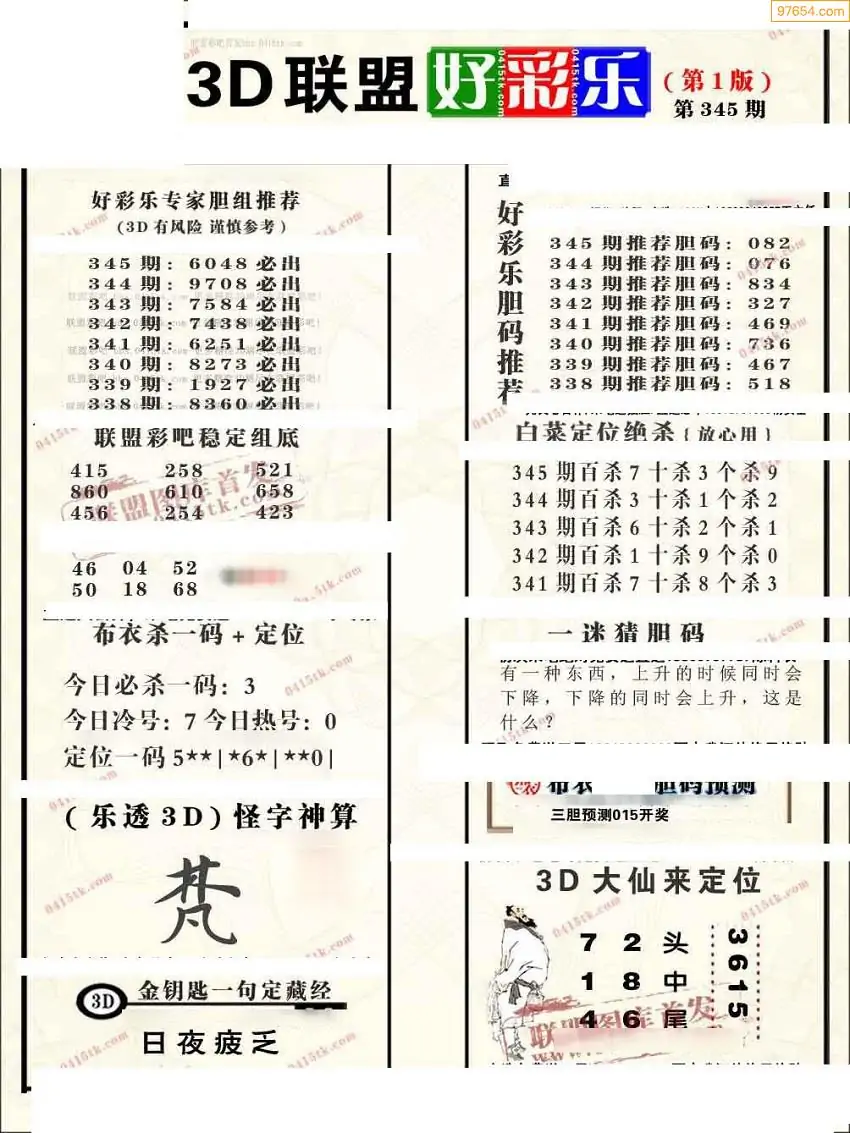 97654.com
3D联盟好彩乐
(第1版)
第345期
好彩乐专家胆组推荐
(3D有风险 谨慎参考)
345期：6048必出
344期：9708必出
343期：7584必出
342期：7438必出
341期：6251必出
340期：8273必出
339期：1927必出
338期：8360必出
联盟彩吧稳定组底
415 258 521
860 610 658
456 254 423
46 04 52
50 18 68
布衣杀一码+定位
今日必杀一码：3
今日冷号：7 今日热号：0
定位一码 5**|*6*|**0|
(乐透3D)怪字神算
梵
3D
金钥匙一句定藏经
日夜疲乏
好彩乐胆码推荐
345期推荐胆码：082
344期推荐胆码：076
343期推荐胆码：834
342期推荐胆码：327
341期推荐胆码：469
340期推荐胆码：736
339期推荐胆码：467
338期推荐胆码：518
白菜定位绝杀{放心用}
345期百杀7十杀3个杀9
344期百杀3十杀1个杀2
343期百杀6十杀2个杀1
342期百杀1十杀9个杀0
341期百杀7十杀8个杀3
一迷猜胆码
有一种东西，上升的时候同时会
下降，下降的同时会上升，这是
什么？
布衣 胆码预测
三胆预测015开奖
3D大仙来定位
7 2 头
1 8 中
4 6 尾
3615
联盟图库首发
0415tk.com